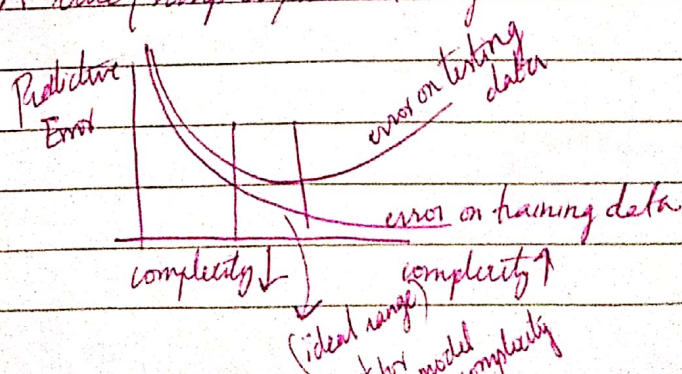 Predictive
Error
error on testing
data
error on training data
complexity ↓
complexity ↑
(ideal range)
for model
complexity